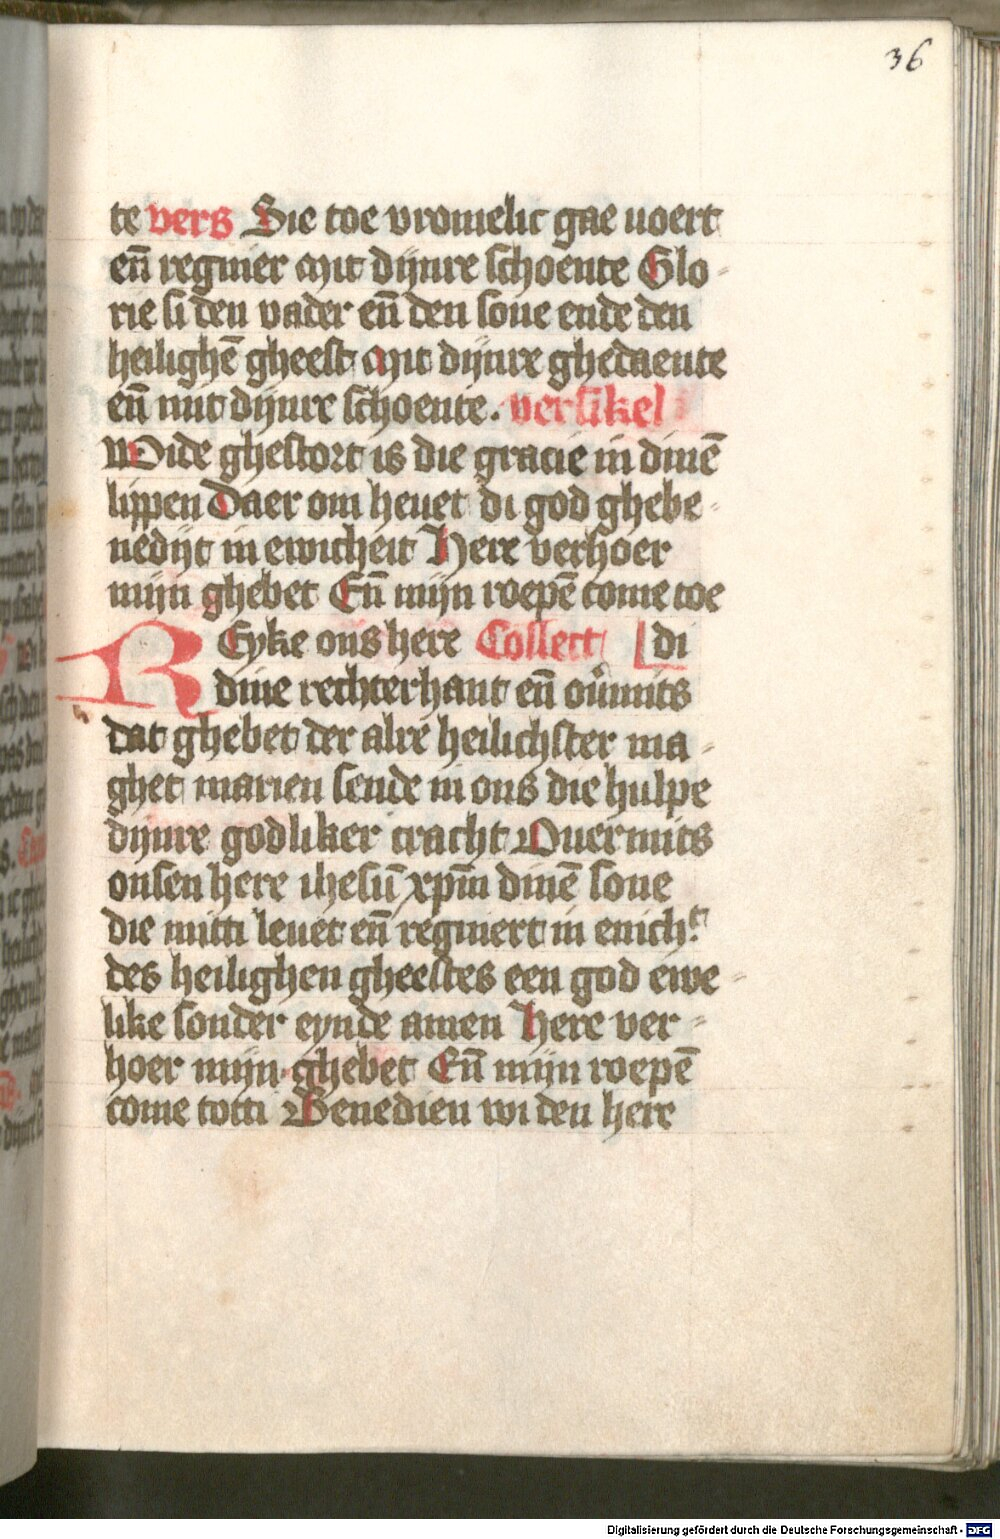 36
te vers Sie toe vromelic gae uoert
en̄ regnier Mit dijnre schoente Glo-
rie si den vader en̄ den sone ende den
heilighē gheest Mit dijnre ghedaente
en̄ mit dijnre schoente. versikel
Wide ghestort is die gracie in dinē
lippen Daer om heuet di god ghebe-
nedijt in ewicheit Here verhoer
mijn ghebet En̄ mijn roepē come toe
REyke ons here Collect di
dine rechterhant en̄ ou̕mits
dat ghebet der alre heilichster ma-
ghet marien sende in ons die hulpe
dijnre godliker cracht Ouermits
onsen here ihesū xpm̄ dinē sone
die mitti leuet en̄ regniert in enich.t
des heilighen gheestes een god ewe-
like sonder eynde amen Here ver-
hoer mijn ghebet En̄ mijn roepē
come totti Benedien wi den here
Digitalisierung gefördert durch die Deutsche Forschungsgemeinschaft - DFG